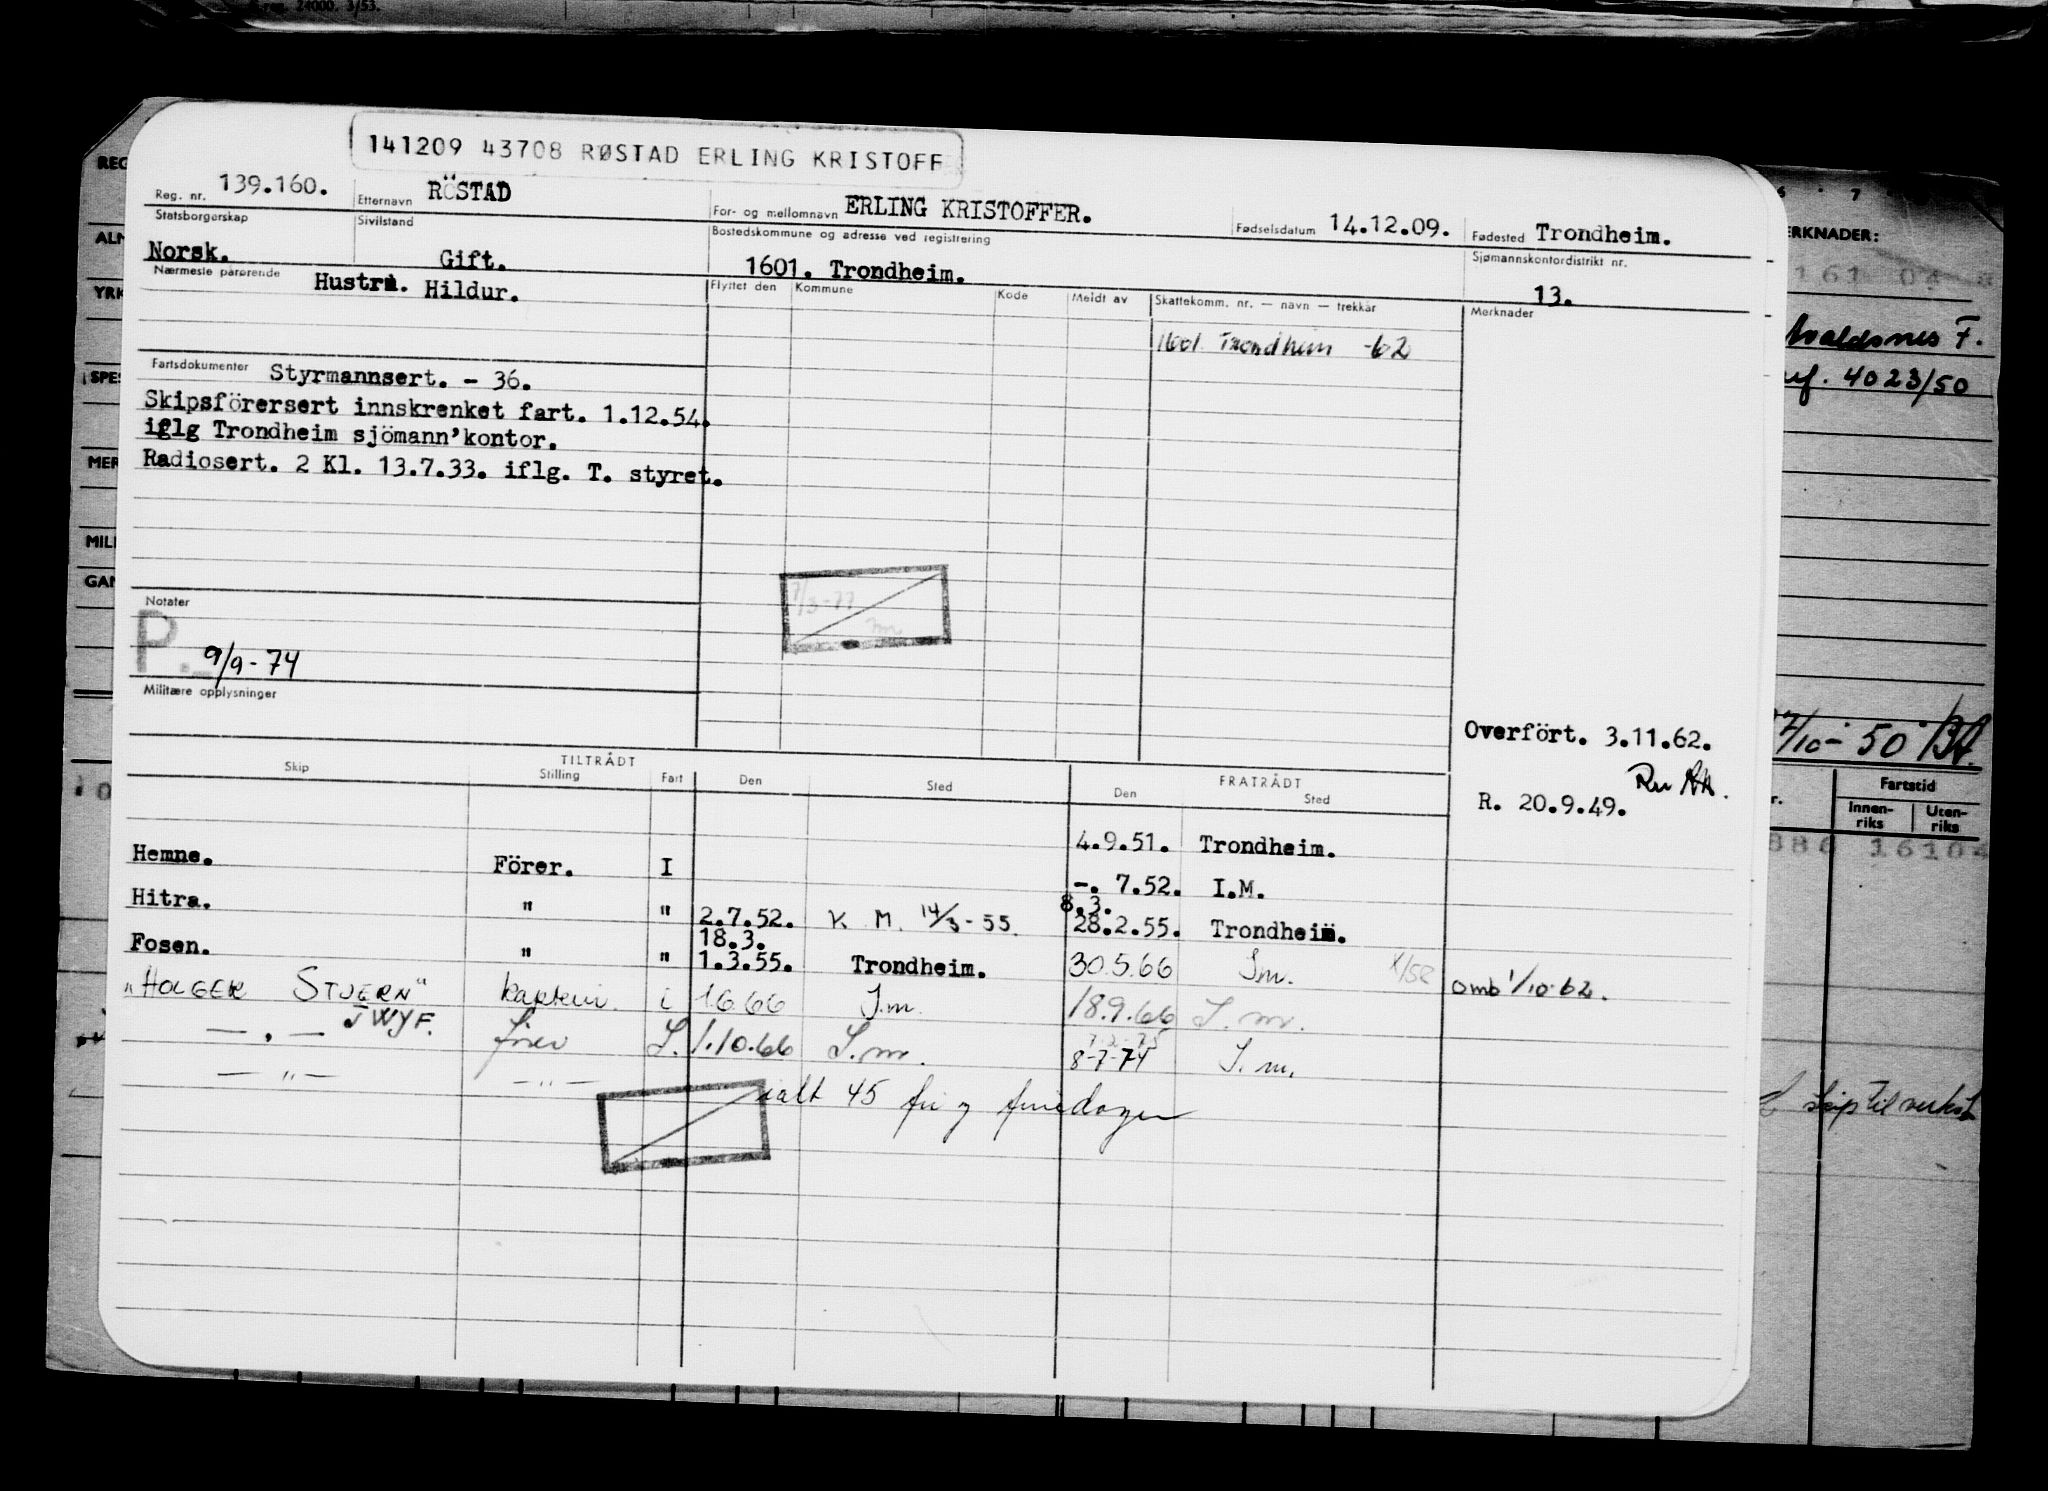 reg. 24000. 3/53.
141209 43708 RØSTAD ERLING KRISTOFF
Reg. nr. 139.160. Etternavn RÖSTAD For- og mellomnavn ERLING KRISTOFFER. Fødselsdatum 14.12.09. Fødested Trondheim.
Statsborgerskap Sivilstand Bostedskommune og adresse ved registrering Sjømannskontordistrikt nr.
Norsk. Gift. 1601. Trondheim. 13.
Nærmeste pårørende Hustru. Hildur. Flyttet den Kommune Kode Meldt av Skattekomm. nr. — navn — trekkår Merknader
1601 Trondheim -62
Fartsdokumenter Styrmannsert. - 36.
Skipsförersert innskrenket fart. 1.12.54.
iflg Trondheim sjömann'kontor.
Radiosert. 2 Kl. 13.7.33. iflg. T. styret.
7/3-77
Notater
P. 9/9-74
Militære opplysninger
Overfört. 3.11.62.
R. 20.9.49.
TILTRÅDT FRATRÅDT
Skip Stilling Fart Den Sted Den Sted
Hemne. Förer. I 4.9.51. Trondheim.
Hitra. " " 2.7.52. K. M. 14/3-55. -. 7.52. I.M.
8.3.
28.2.55. Trondheim.
18.3.
Fosen. " " 1.3.55. Trondheim. 30.5.66 I.m.
omb 1/10.62.
"HOLGER STJERN" kaptein i 1.6.66 I.m. 18.9.66 I.m.
JWYF.
— . — fører I. 1.10.66 I.m. 8-7-74 I.m.
— " — — " —
ialt 45 fri og feriedager
REG
ALM
YRK
SPES
MER
MILI
GAN
6 7
ERKNADER:
161 04
Avaldsnes F.
4023/50
7/10-50
Fartstid
Innen-
riks
Uten-
riks
886 16104
skip til